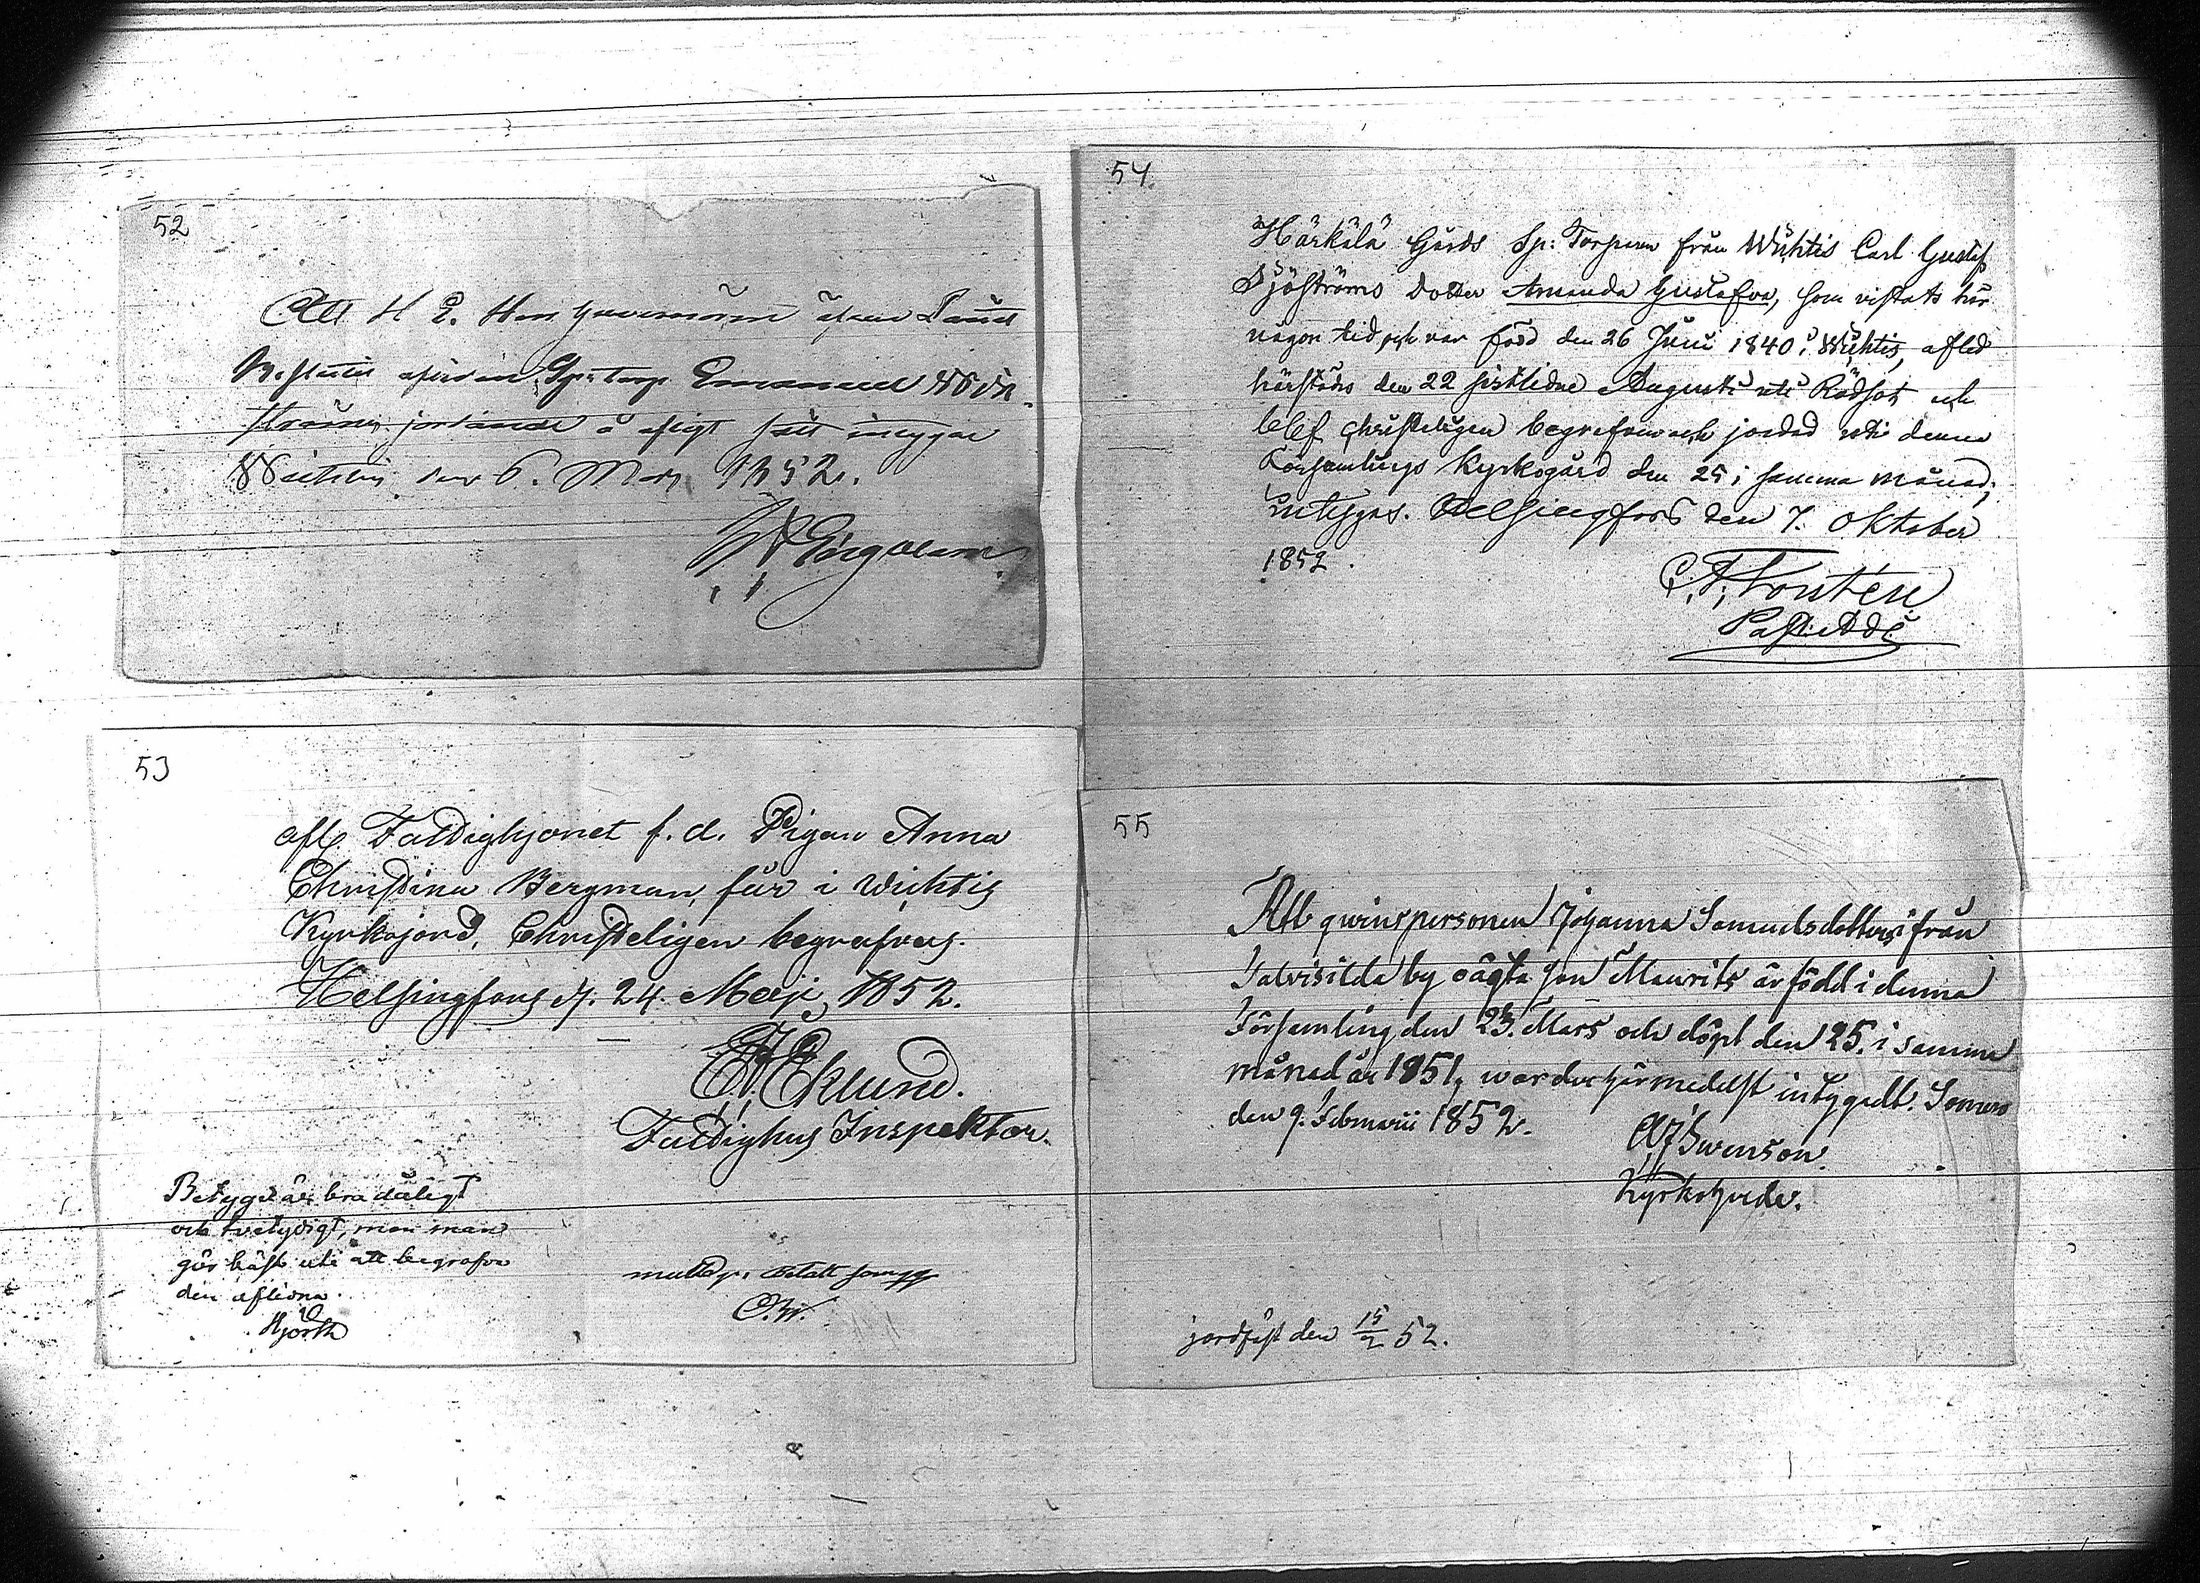 52
Att H E. Herr Guvernören äfven
afvidne Sp: torp Emanuel Wik-
ströms jordande å
Wichtis den 6. Maj 1852.
53
afl. Fattighjonet f. d. Pigan Anna
Christina Bergman, får i Wichtis
Kyrkojord, Christeligen begrafvas.
Helsingfors d. 24. Maji 1852.
Eklund.
Fattighus Inspektor.
Betyget är bra dåligt
och tvetydigt, men man
gör bäst uti att begrafva
den aflidna.
Hjorth
54.
Härkälä Gårds Sp: Torparen från Wichtis Carl Gustaf
Sjöströms dotter Amanda Gustafva, som vistats här
någon tid, och var född den 26 Juni 1840 i Wichtis, afled
härstädes den 22 sistlidne Augusti uti Rödsot och
blef christeligen begrafven och jordad uti denna
Församlings Kyrkogård den 25 i samma månad;
intygas. Helsingfors den 7. Oktober
1852.
C. F. Forstén
Past: Adj:
55
Att qwinspersonen Johanna Samuelsdotters från
Talvisilda by oägta son Maurits är född i denna
Församling den 23. Mars och döpt den 25. i samma
månad år 1851, warder härmedelst intygadt. Somero
den 9. Februarii 1852.
Swenson.
Kyrkoherde.
jordfäst den 15/2 52.